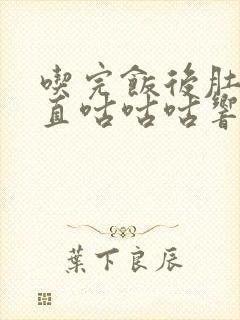 喫完飯後肚
直咕咕咕響
葉下良辰